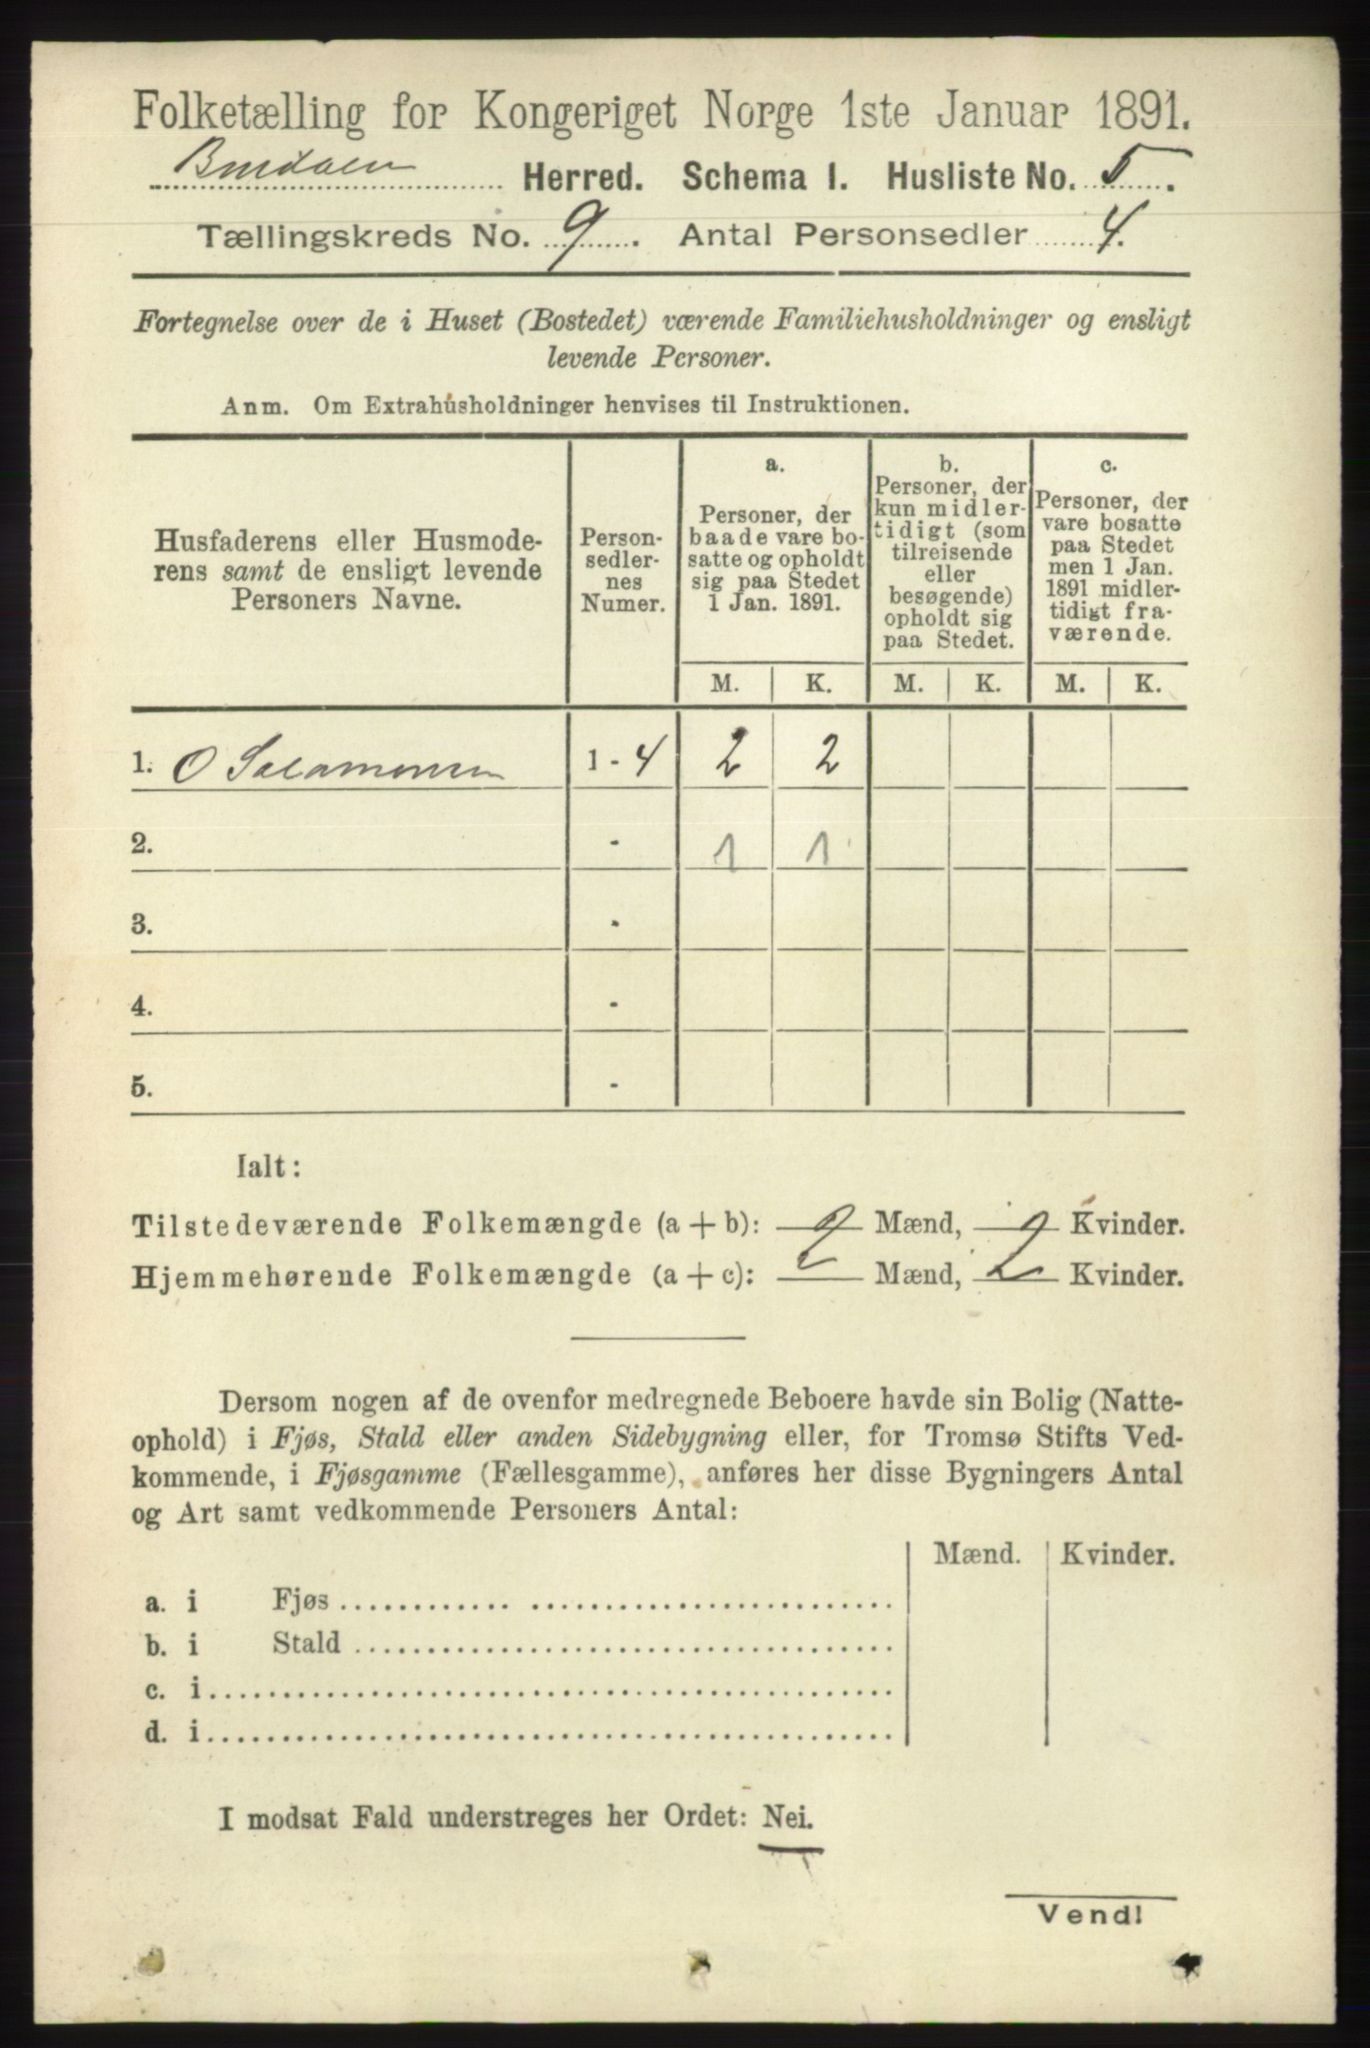 Folketælling for Kongeriget Norge 1ste Januar 1891.
Bindalen Herred. Schema I. Husliste No. 5.
Tællingskreds No. 9. Antal Personsedler 4.
Fortegnelse over de i Huset (Bostedet) værende Familiehusholdninger og ensligt
levende Personer.
Anm. Om Extrahusholdninger henvises til Instruktionen.
Husfaderens eller Husmode-
rens samt de ensligt levende
Personers Navne.
Person-
sedler-
nes
Numer.
a.
Personer, der
baade vare bo-
satte og opholdt
sig paa Stedet
1 Jan. 1891.
b.
Personer, der
kun midler-
tidigt (som
tilreisende
eller
besøgende)
opholdt sig
paa Stedet.
c.
Personer, der
vare bosatte
paa Stedet
men 1 Jan.
1891 midler-
tidigt fra-
værende.
M. K. M. K. M. K.
1. O Salamonsen 1 - 4 2 2
2. - 1 1
3. -
4. -
5. -
Ialt:
Tilstedeværende Folkemængde (a + b): 2 Mænd, 2 Kvinder.
Hjemmehørende Folkemængde (a + c): 2 Mænd, 2 Kvinder.
Dersom nogen af de ovenfor medregnede Beboere havde sin Bolig (Natte-
ophold) i Fjøs, Stald eller anden Sidebygning eller, for Tromsø Stifts Ved-
kommende, i Fjøsgamme (Fællesgamme), anføres her disse Bygningers Antal
og Art samt vedkommende Personers Antal:
Mænd. Kvinder.
a. i Fjøs
b. i Stald
c. i
d. i
I modsat Fald understreges her Ordet: Nei.
Vend!